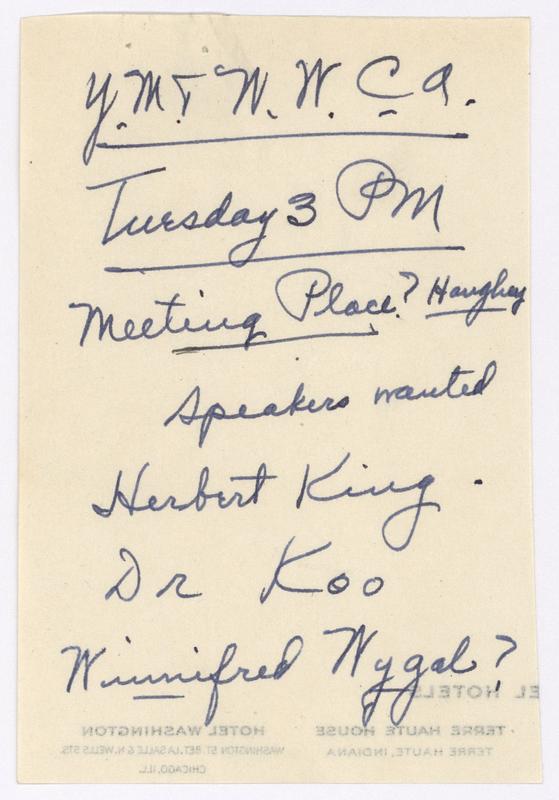 Y.M + W. W. C. A.
Tuesday 3 PM
Meeting Place? Haughey
Speakers wanted
Herbert King.
Dr Koo
Winnifred Wygal?
EL HOTELS
HOTEL WASHINGTON TERRE HAUTE HOUSE
WASHINGTON ST. BET. LA SALLE & N. WELLS STS. TERRE HAUTE, INDIANA
CHICAGO, ILL.